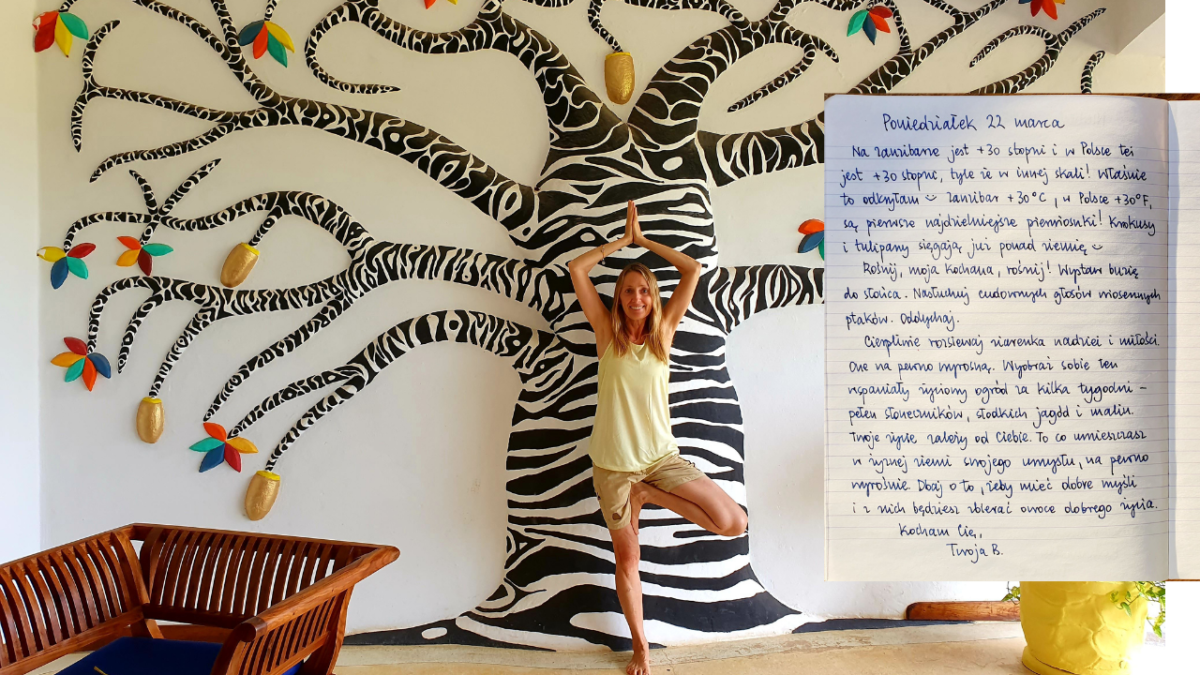 Poniedziałek 22 marca
Na Zanzibarze jest +30 stopni i w Polsce też
jest +30 stopni, tyle że w innej skali! Właśnie
to odkryłam Zanzibar +30°C, w Polsce +30°F,
są pierwsze najdzielniejsze pierwiosnki! Krokusy
i tulipany sięgają już ponad ziemię
Rośnij, moja kochana, rośnij! Wystaw buzię
do słońca. Nasłuchuj cudownych głosów wiosennych
ptaków. Oddychaj.
Cierpliwie rozsiewaj ziarenka nadziei i miłości.
One na pewno wyrosną. Wyobraź sobie ten
wspaniały życiowy ogród za kilka tygodni –
pełen słoneczników, słodkich jagód i malin.
Twoje życie zależy od Ciebie. To co umieszczasz
w żyznej ziemi swojego umysłu, na pewno
wyrośnie. Dbaj o to, żeby mieć dobre myśli
i z nich będziesz zbierać owoce dobrego życia.
Kocham Cię,
Twoja B.